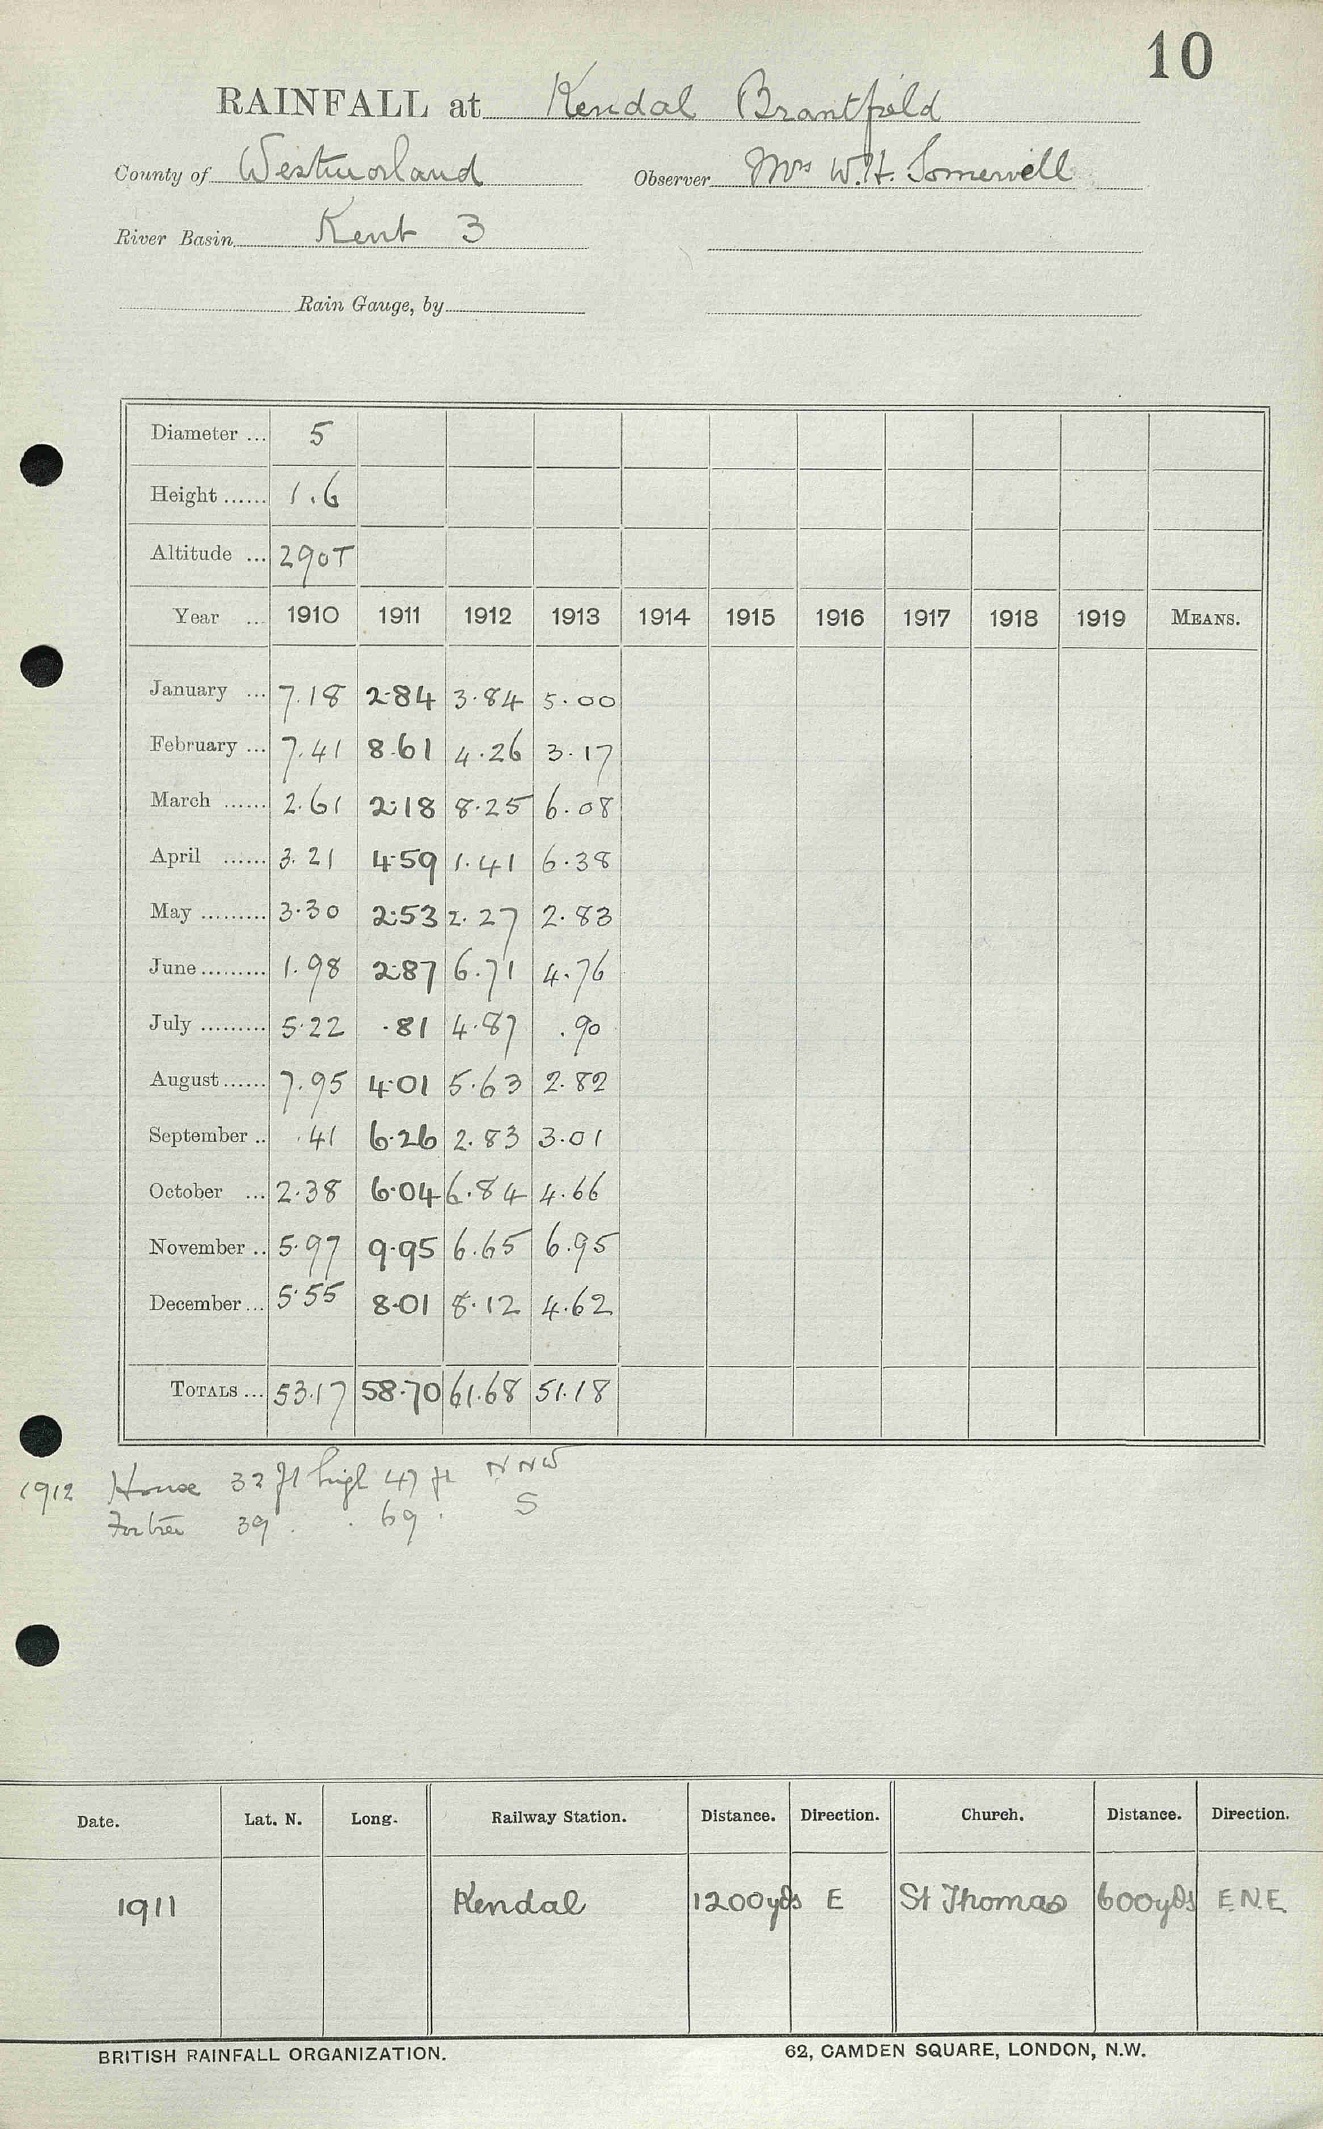 10
RAINFALL at Kendal Brantfield
County of Westmorland Observer Mrs W.H. Somervell
River Basin Kent 3
Rain Gauge, by
Diameter ... 5
Height ...... 1.6
Altitude ... 290T
Year ... 1910 1911 1912 1913 1914 1915 1916 1917 1918 1919 MEANS.
January ... 7.18 2.84 3.84 5.00
February ... 7.41 8.61 4.26 3.17
March ...... 2.61 2.18 8.25 6.08
April ...... 3.21 4.59 1.41 6.38
May ......... 3.30 2.53 2.27 2.83
June ......... 1.98 2.87 6.71 4.76
July ......... 5.22 .81 4.87 .90
August ...... 7.95 4.01 5.63 2.82
September .. .41 6.26 2.83 3.01
October ... 2.38 6.04 6.84 4.66
November .. 5.97 9.95 6.65 6.95
December ... 5.55 8.01 8.12 4.62
TOTALS ... 53.17 58.70 61.68 51.18
1912 House 32 ft high 47 ft NNW
39 . . 69 . S
Date. Lat. N. Long. Railway Station. Distance. Direction. Church. Distance. Direction.
1911 Kendal 1200yds E St Thomas 600yds E.N.E.
BRITISH RAINFALL ORGANIZATION. 62, CAMDEN SQUARE, LONDON, N.W.